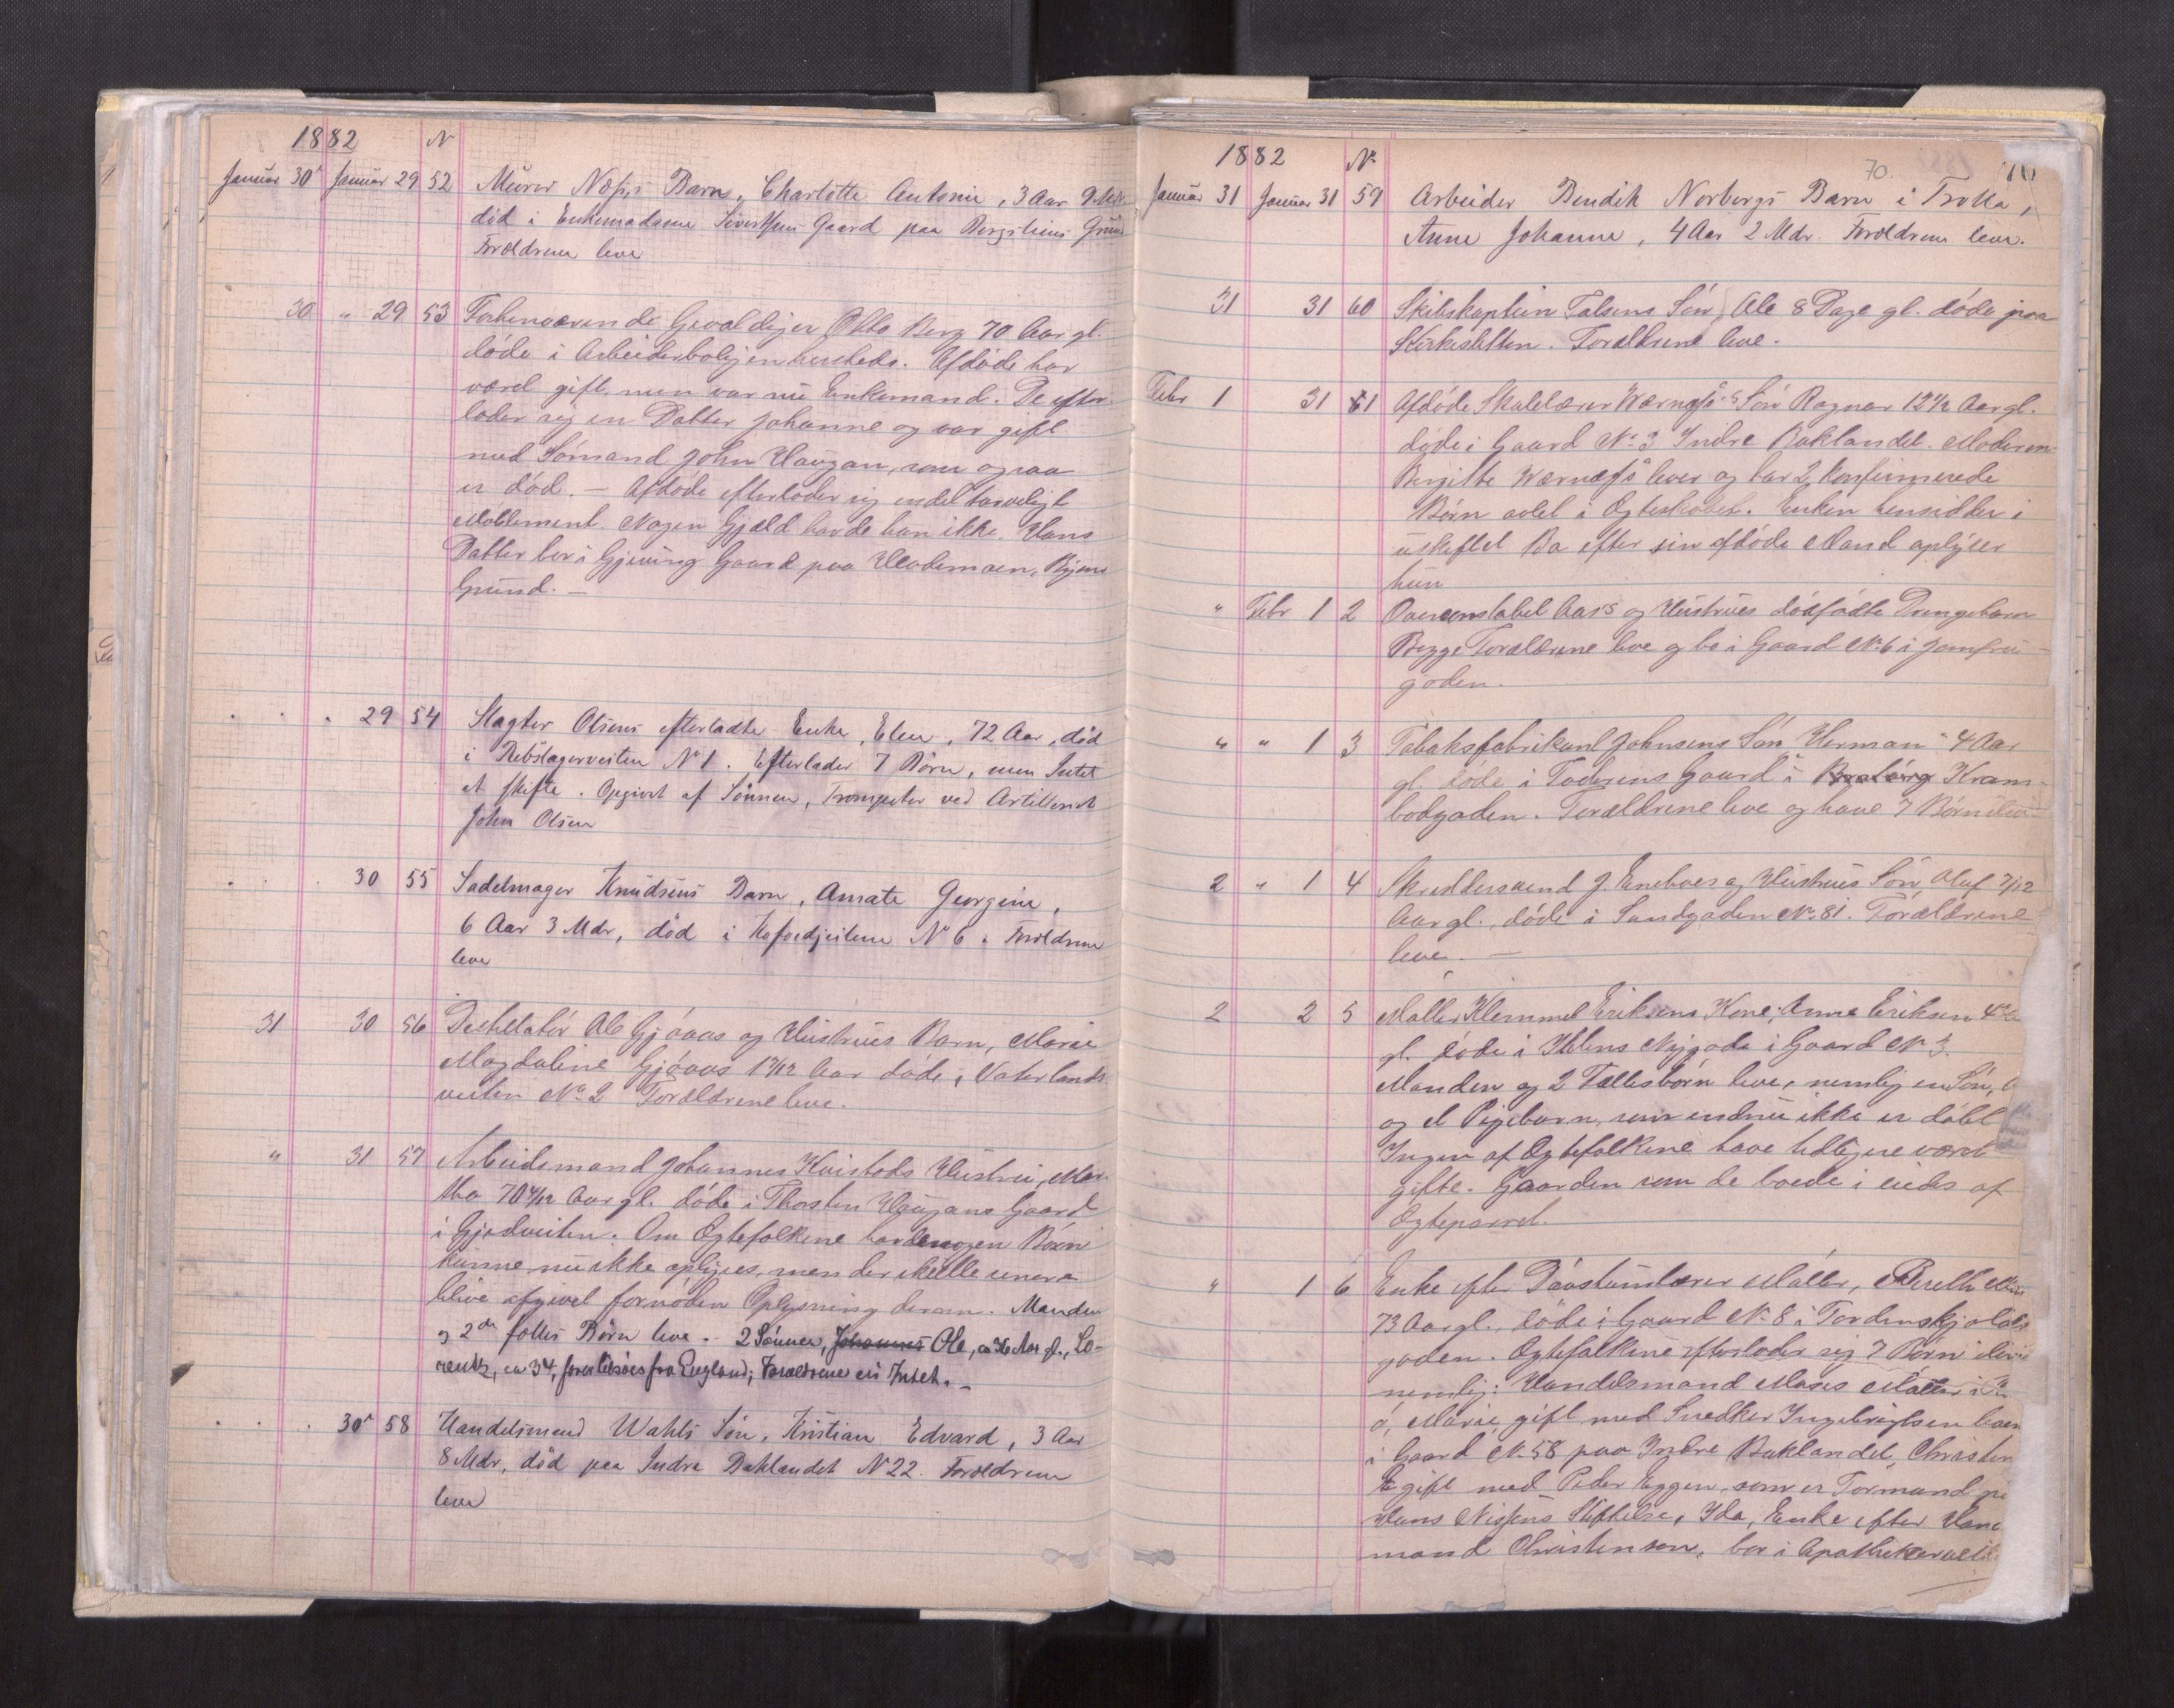 1882 N
Januar 30 Januar 29 52 Murer Næss's Barn, Charlotte Antonie, 3 Aar 9 Mdr
død i Enkemadame Sivertsens Gaard paa Bergsliens Grund
Forældrene leve
30 " 29 53 Forhenværende Gevaldiger Otto Berg 70 Aar gl.
døde i Arbeiderboligen hersteds. Afdøde har
været gift, men var nu Enkemand. De efter-
lader sig en Datter Johanne og var gift
med Sømand John Haugan, som ogsaa
er død. — Afdøde efterlader sig endel tarveligt
Møblement. Nogen Gjæld havde han ikke. Hans
Datter bor i Gjevings Gaard paa Vlademoen, Byens
Grund. —
" " " 29 54 Slagter Olsens efterladte Enke, Elen, 72 Aar, død
i Rebslagerveiten N 1. Efterlader 7 Børn, men Intet
at skifte. Opgivet af Sønnen, Trompeter ved Artilleriet
John Olsen
" " 30 55 Sadelmager Knudsens Barn, Amate Georgine,
6 Aar 3 Mdr, død i N 6. Forældrene
leve
31 30 56 Destillatør Ole Gjøaas og Hustrues Barn, Marie
Magdaline Gjøaas Aar døde i Vaterlands-
veiten No 2 Forældrene leve.
" 31 57 Arbeidsmand Johannes Kvistads Hustru, Mar-
tha Aar gl. døde i Thorsten Haugans Gaard
i Gjedveiten. Om Ægtefolkene havde nogen Børn
kunne nu ikke oplyses, men der skulle senere
blive afgivet fornøden Oplysning derom. Manden
og 2de fælles Børn leve. 2 Sønner, Johannes Ole, ca 36 Aar gl., Lo-
rentz, ca 34, fra England; Forældrene ei Intet. —
" " " 30 58 Handelsmand Wahls Søn, Kristian Edvard, 3 Aar
8 Mdr, død paa Indre Baklandet N 22. Forældrene
leve
1882 N 70. 70
Januar 31 Januar 31 59 Arbeider Bendik Norbergs Barn i Trolla,
Anne Johanne, 4 Aar 2 Mdr. Forældrene leve.
31 31 60 Skibskaptein Falsens Søn, Ole 8 Dage gl. døde paa
Kirkesletten. Forældrene leve.
Febr 1 31 61 Afdøde Skolelærer Wærnæss's Søn Ragnar 12½ Aar gl.
døde i Gaard No 3 Indre Baklandet. Moderen
Birgitte Wærnæss lever og har 2 konfirmerede
Børn avlet i Ægteskabet. Enken hensidder i
uskiftet Bo efter sin afdøde Mand oplyser
hun
" Febr 1 2 Overconstabel Aas's og Hustrues dødfødte Drengebarn
Begge Forældrene leve og bo i Gaard No 6 i Jomfru-
gaden.
" " 1 3 Tobaksfabrikant Johnsens Søn "Herman" 4 Aar
gl. døde i Gaard i Kram-
bodgaden. Forældrene leve og have 7 Børn
2 " 1 4 Skreddersvend J. Eneboes og Hustrues Søn, Oluf 7/12
Aar gl., døde i Sandgaden No 81. Forældrene
leve. —
2 2 5 Møller Klemmet Eriksens Kone, Anna Eriksen
gl. døde i Ihlens Nygade i Gaard No 3.
Manden og 2 Fællesbørn leve, nemlig en Søn,
og et Pigebarn, som endnu ikke er døbt
Ingen af Ægtefolkene have tidligere været
gifte. Gaarden som de boede i eiedes af
Ægteparret.
" 1 6 Enke efter Møller, Bereth
73 Aar gl., døde i Gaard No 8 i Tordenskjolds
gaden. Ægtefolkene efterlader sig 7 Børn
nemlig: Handelsmand Moses Møller i
ø, Marie, gift med Snedker Ingebrigtsen boen
i Gaard No 58 paa Indre Baklandet, Christen
E gift med Peder Eggen, som er Formand paa
Hans Nissens Stiftelse, Ida, Enke efter Hans
mand Christenson, bor i Apothekerveit